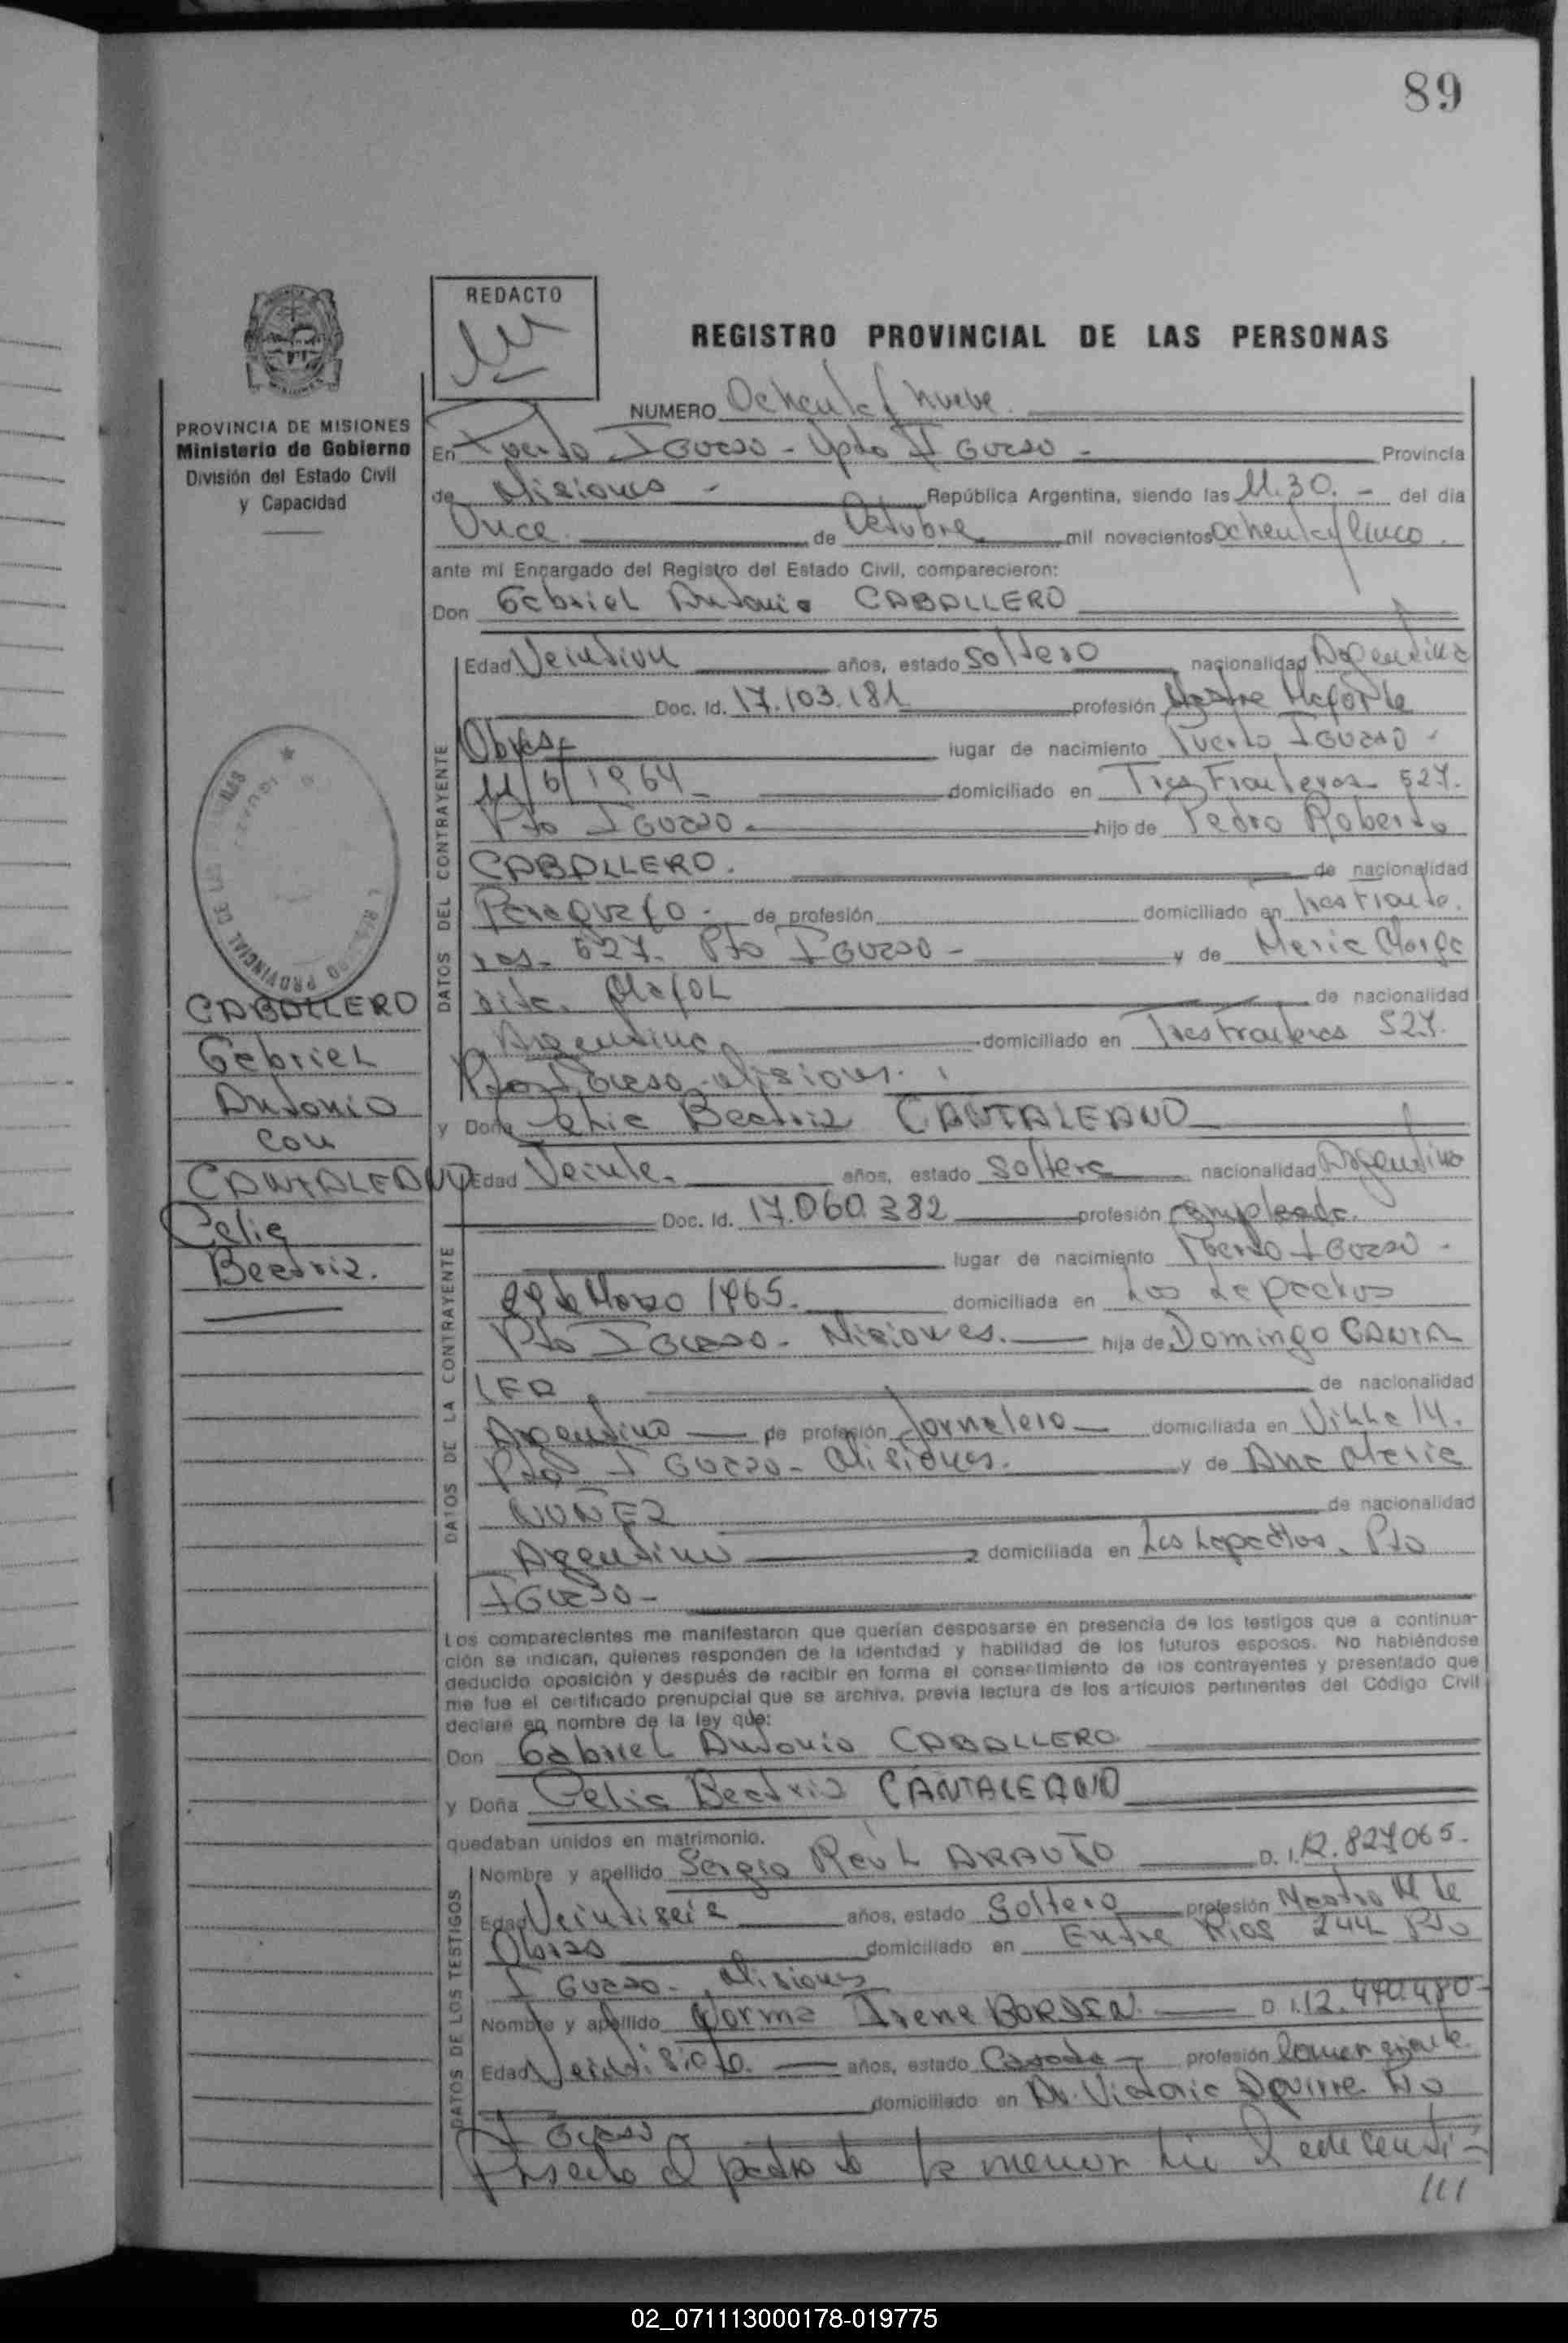 89
REDACTO
REGISTRO PROVINCIAL DE LAS PERSONAS
PROVINCIA DE MISIONES
Ministerio de Gobierno
División del Estado Civil
y Capacidad
NUMERO Ochenta y nueve
En Puerto Iguazo - Dpto Iguazo - Provincia
de Misiones - República Argentina, siendo las 11.30. - del día
Once de Octubre mil novecientos ochenta y Cinco.
ante mi Encargado del Registro del Estado Civil, comparecieron:
Don Gabriel Antonio CABALLERO
DATOS DEL CONTRAYENTE
Edad Veintiun años, estado soltero nacionalidad Argentina
Doc. Id. 17.103.181 profesión
lugar de nacimiento Puerto Iguazo -
11/6/1964 domiciliado en Tres Fronteras 527.
Pto Iguazo. hijo de Pedro Roberto
CABALLERO. de nacionalidad
de profesión domiciliado en tres Fronte.
ras. 527. Pto Iguazo - y de Maria Marga
rita. de nacionalidad
Argentina domiciliado en Tres Fronteras 527.
Pto Iguazo - Misiones.
y Doña Celia Beatriz CANTALEANO
CABALLERO
Gabriel
Antonio
con
CANTALEANO
Celia
Beatriz.
DATOS DE LA CONTRAYENTE
Edad Veinte. años, estado Soltera nacionalidad Argentina
Doc. Id. 17.060.382 profesión empleada.
lugar de nacimiento Puerto Iguazo -
Marzo 1965. domiciliada en Los Lapachos
Pto Iguazo - Misiones. hija de Domingo CANTA
LEA de nacionalidad
Argentino de profesión Jornalero domiciliada en Villa 14.
Pto Iguazo - Misiones. y de Ana Maria
NUÑEZ de nacionalidad
Argentina domiciliada en Los Lapachos. Pto
Iguazo -
Los comparecientes me manifestaron que querían desposarse en presencia de los testigos que a continua-
ción se indican, quienes responden de la identidad y habilidad de los futuros esposos. No habiéndose
deducido oposición y después de recibir en forma el consentimiento de los contrayentes y presentado que
me fue el certificado prenupcial que se archiva, previa lectura de los artículos pertinentes del Código Civil
declaré en nombre de la ley que:
Don Gabriel Antonio CABALLERO
y Doña Celia Beatriz CANTALEANO
quedaban unidos en matrimonio.
DATOS DE LOS TESTIGOS
Nombre y apellido Sergio Raúl ARAUJO D. I. 12.827065.
Edad Veintiseis años, estado Soltero profesión Mestro M de
Obras domiciliado en Entre Rios 244 Pto
Iguazo - Misiones
Nombre y apellido Norma Irene D I. 12.440480
Edad Veintisiete. años, estado Casada - profesión Comerciante.
domiciliado en Av. Victoria Aguirre Pto
Iguazo
Presente el padre de la menor
///
02_071113000178-019775